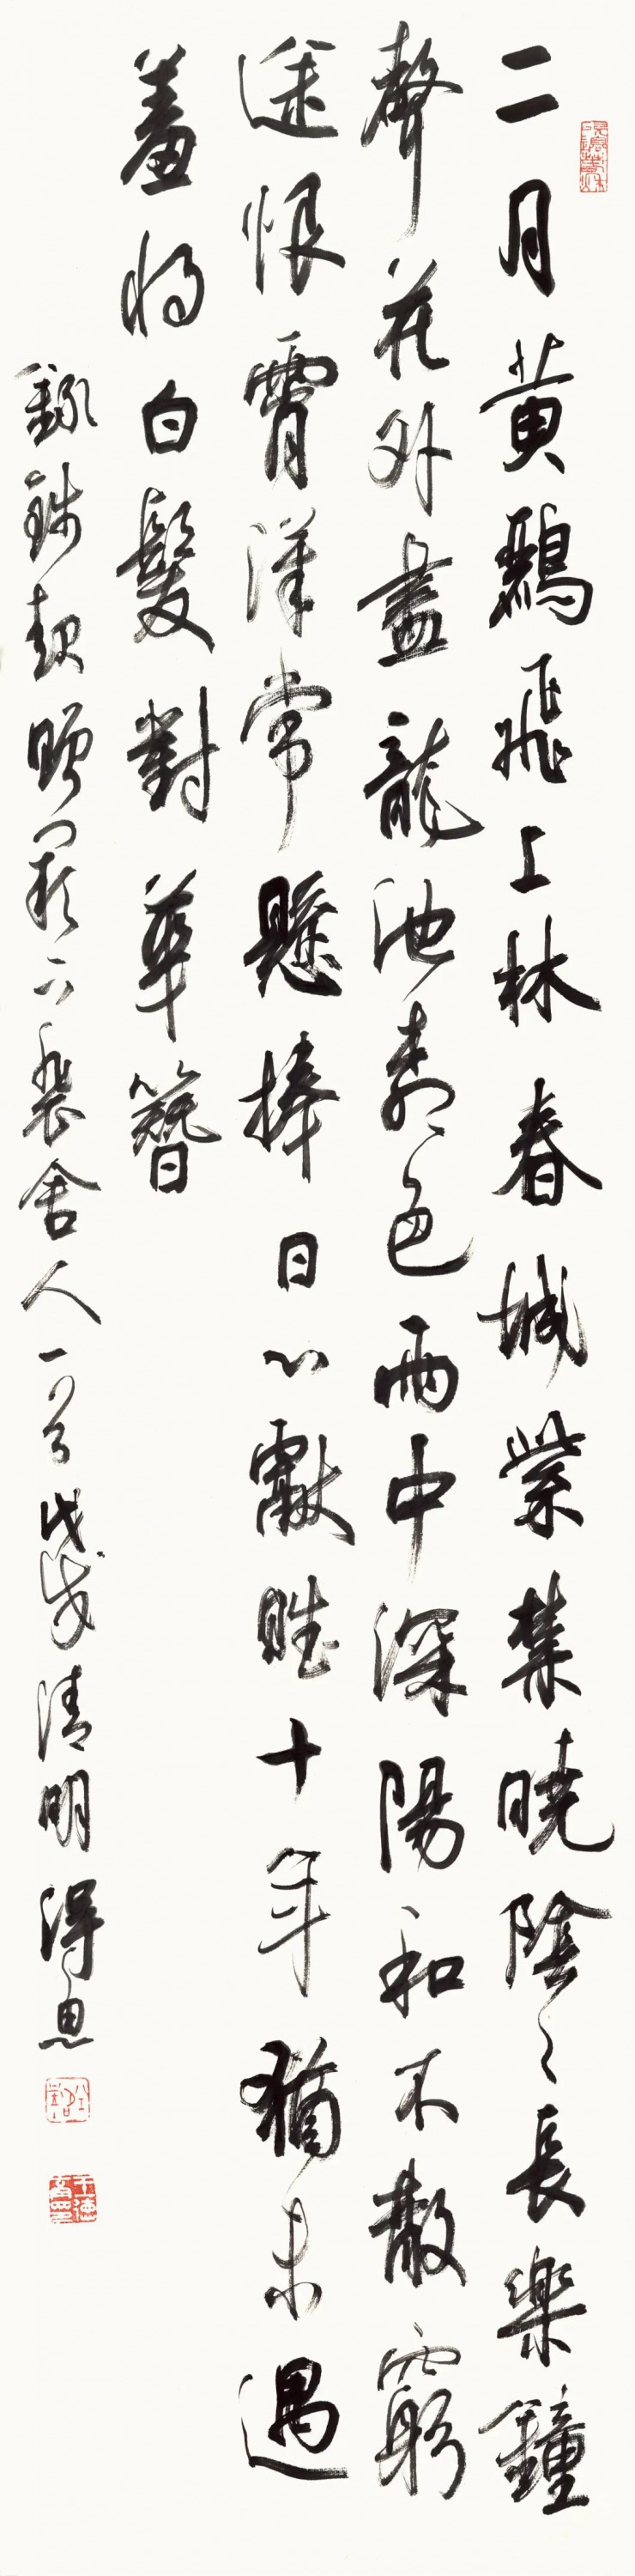 二月黃鸝飛上林春城紫禁曉陰〻長樂鐘
聲花外盡龍池柳色雨中深陽和不散窮
途恨霄漢常懸捧日心獻賦十年猶未遇
羞將白髮對華簪
錄錢起贈闕下裴舍人一首戊戌清明得思